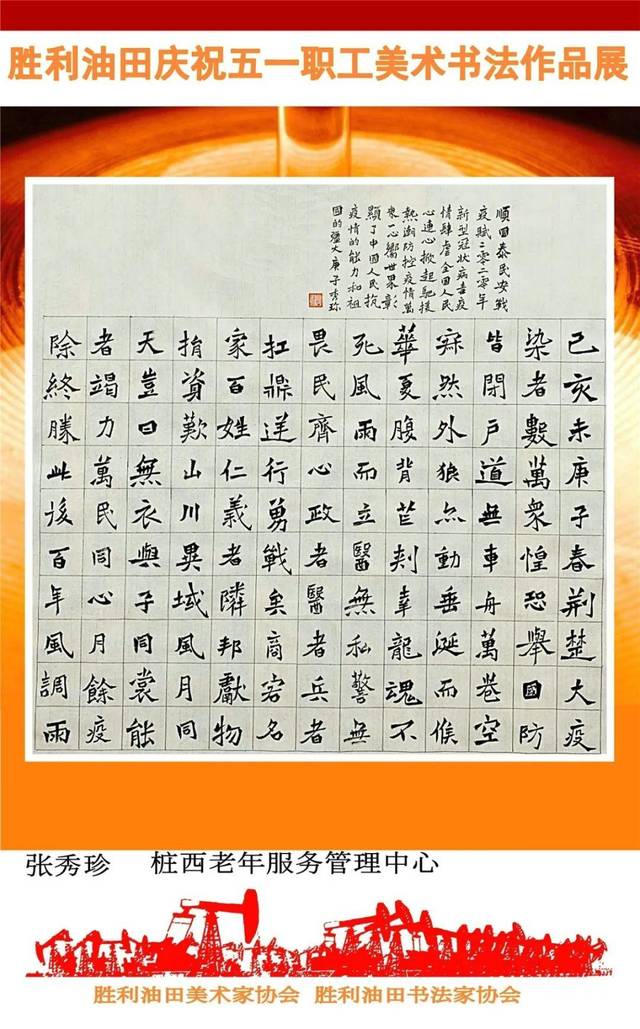 胜利油田庆祝五一职工美术书法作品展
己亥未庚子春荆楚大疫
染者數萬衆惶恐舉國防
皆閉戶道無車舟萬巷空
寐然外狼点動垂涎而候
華夏腹背芒刺幸龍魂不
死風雨而立醫無私警無
畏民齊心政者醫者兵者
扛鼎逆行勇戰矣商宕名
家百姓仁義者隣邦獻物
捐資歎山川異域風月同
天豈曰無衣與子同裳能
者竭力萬民同心月餘疫
除終勝此後百年風調雨
順国泰民安戰
疫賦二零二零年
新型冠狀病毒疫
情肆虐全国人民
心連心掀起馳援
熱潮防控疫情萬
衆一心嚮世界彰
顯了中國人民抗
疫情的能力和祖
国的強大庚子秀珍
张秀珍 桩西老年服务管理中心
胜利油田美术家协会 胜利油田书法家协会